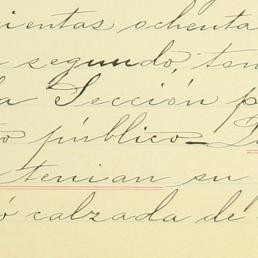 cientas ochenta
segundo, ten
la Sección p
to público_
tenian su
ó calzada de